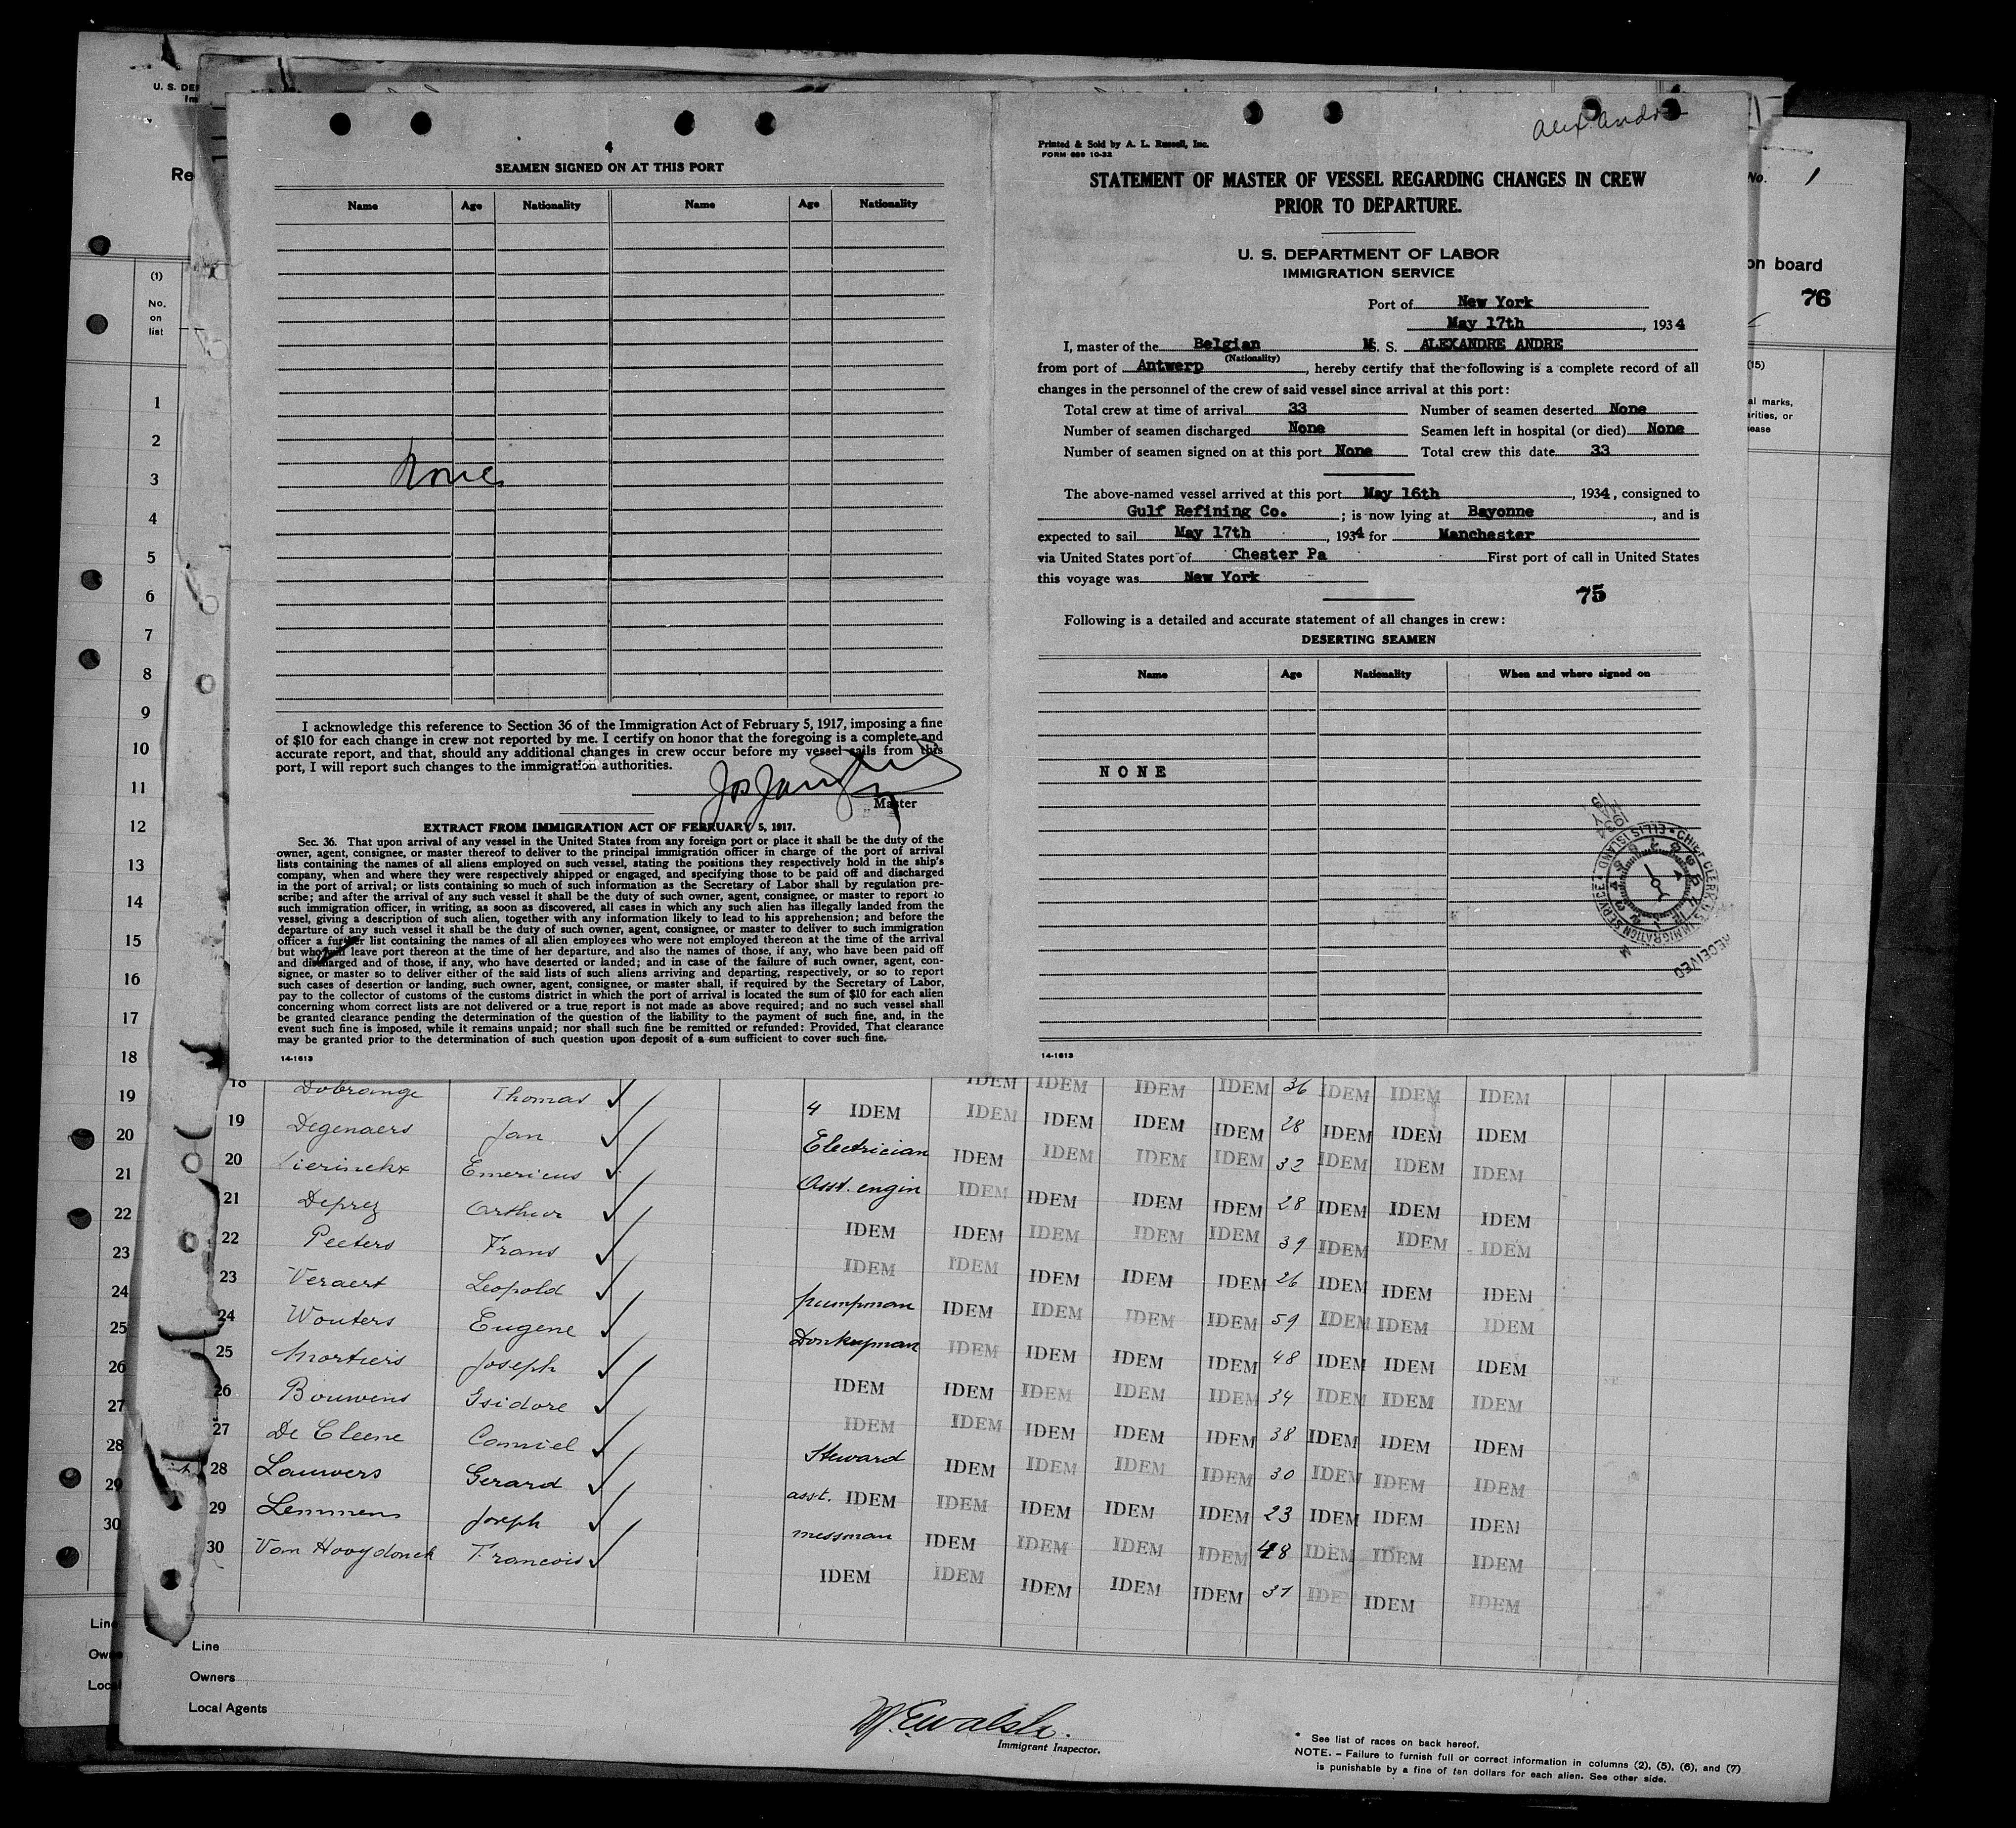 U. S. DEP
Im
Re
(1)
No.
on
list
1
2
3
4
5
6
7
8
9
10
11
12
13
14
15
16
17
18
19
20
21
22
23
24
25
26
27
28
29
30
Line
Owne
Local
4
SEAMEN SIGNED ON AT THIS PORT
Name Age Nationality Name Age Nationality
None
I acknowledge this reference to Section 36 of the Immigration Act of February 5, 1917, imposing a fine
of $10 for each change in crew not reported by me. I certify on honor that the foregoing is a complete and
accurate report, and that, should any additional changes in crew occur before my vessel sails from this
port, I will report such changes to the immigration authorities.
Master
EXTRACT FROM IMMIGRATION ACT OF FEBRUARY 5, 1917.
Sec. 36. That upon arrival of any vessel in the United States from any foreign port or place it shall be the duty of the
owner, agent, consignee, or master thereof to deliver to the principal immigration officer in charge of the port of arrival
lists containing the names of all aliens employed on such vessel, stating the positions they respectively hold in the ship's
company, when and where they were respectively shipped or engaged, and specifying those to be paid off and discharged
in the port of arrival; or lists containing so much of such information as the Secretary of Labor shall by regulation pre-
scribe; and after the arrival of any such vessel it shall be the duty of such owner, agent, consignee, or master to report to
such immigration officer, in writing, as soon as discovered, all cases in which any such alien has illegally landed from the
vessel, giving a description of such alien, together with any information likely to lead to his apprehension; and before the
departure of any such vessel it shall be the duty of such owner, agent, consignee, or master to deliver to such immigration
officer a further list containing the names of all alien employees who were not employed thereon at the time of the arrival
but who will leave port thereon at the time of her departure, and also the names of those, if any, who have been paid off
and discharged and of those, if any, who have deserted or landed; and in case of the failure of such owner, agent, con-
signee, or master so to deliver either of the said lists of such aliens arriving and departing, respectively, or so to report
such cases of desertion or landing, such owner, agent, consignee, or master shall, if required by the Secretary of Labor,
pay to the collector of customs of the customs district in which the port of arrival is located the sum of $10 for each alien
concerning whom correct lists are not delivered or a true report is not made as above required; and no such vessel shall
be granted clearance pending the determination of the question of the liability to the payment of such fine, and, in the
event such fine is imposed, while it remains unpaid; nor shall such fine be remitted or refunded: Provided, That clearance
may be granted prior to the determination of such question upon deposit of a sum sufficient to cover such fine.
14-1613
Alexandre
Printed & Sold by A. L. Russell, Inc.
FORM 689 10-32
STATEMENT OF MASTER OF VESSEL REGARDING CHANGES IN CREW
PRIOR TO DEPARTURE.
U. S. DEPARTMENT OF LABOR
IMMIGRATION SERVICE
Port of New York
May 17th, 1934
I, master of the Belgian M. S. ALEXANDRE ANDRE
(Nationality)
from port of Antwerp, hereby certify that the following is a complete record of all
changes in the personnel of the crew of said vessel since arrival at this port:
Total crew at time of arrival 33 Number of seamen deserted None
Number of seamen discharged None Seamen left in hospital (or died) None
Number of seamen signed on at this port None Total crew this date 33
The above-named vessel arrived at this port May 16th, 1934, consigned to
Gulf Refining Co.; is now lying at Bayonne, and is
expected to sail May 17th, 1934 for Manchester
via United States port of Chester Pa First port of call in United States
this voyage was New York
75
Following is a detailed and accurate statement of all changes in crew:
DESERTING SEAMEN
Name Age Nationality When and where signed on
NONE
RECEIVED
CHIEF CLERK U.S. IMMIGRATION SERVICE ELLIS ISLAND
14-1613
No. 1
on board
76
(15)
al marks,
rities, or
ease
18 Dobrange Thomas IDEM IDEM IDEM IDEM 36 IDEM IDEM IDEM
19 Degenaers Jan 4 IDEM IDEM IDEM IDEM IDEM 28 IDEM IDEM IDEM
20 Lierinckx Emericus Electrician IDEM IDEM IDEM IDEM 32 IDEM IDEM IDEM
21 Deprez Arthur Asst. engin IDEM IDEM IDEM IDEM 28 IDEM IDEM IDEM
22 Peeters Frans IDEM IDEM IDEM IDEM IDEM 39 IDEM IDEM IDEM
23 Veraert Leopold IDEM IDEM IDEM IDEM IDEM 26 IDEM IDEM IDEM
24 Wouters Eugene pumpman IDEM IDEM IDEM IDEM 59 IDEM IDEM IDEM
25 Mortiers Joseph Donkeyman IDEM IDEM IDEM IDEM 48 IDEM IDEM IDEM
26 Bouwens Isidore IDEM IDEM IDEM IDEM IDEM 34 IDEM IDEM IDEM
27 De Cleene Camiel IDEM IDEM IDEM IDEM IDEM 38 IDEM IDEM IDEM
28 Lauwers Gerard Steward IDEM IDEM IDEM IDEM 30 IDEM IDEM IDEM
29 Lemmens Joseph asst. IDEM IDEM IDEM IDEM IDEM 23 IDEM IDEM IDEM
30 Van Hooydonck Francois messman IDEM IDEM IDEM IDEM 48 IDEM IDEM IDEM
IDEM IDEM IDEM IDEM IDEM 37 IDEM IDEM IDEM
Line
Owners
Local Agents
Immigrant Inspector.
* See list of races on back hereof.
NOTE. - Failure to furnish full or correct information in columns (2), (5), (6), and (7)
is punishable by a fine of ten dollars for each alien. See other side.